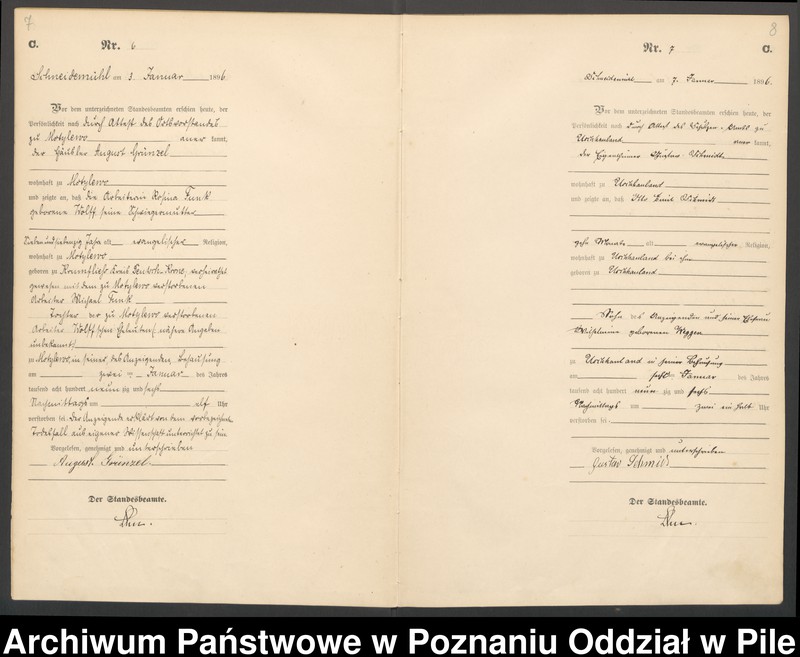 7
C.
Nr. 6
Schneidemühl am 3. Januar 1896.
Vor dem unterzeichneten Standesbeamten erschien heute, der
Persönlichkeit nach durch Attest des Ortsvorstandes
zu Motylewo anerkannt,
der Häusler August Grünzel
wohnhaft zu Motylewo
und zeigte an, daß die Arbeiterin Rosina Funk
geborene Wolff seine Schwiegermutter
Sieben und siebenzig Jahre alt evangelischer Religion,
wohnhaft zu Motylewo
geboren zu Kreis Deutsch Krone, verheirathet
gewesen mit dem zu Motylewo verstorbenen
Arbeiter Michael Funk
Tochter der zu Motylewo verstorbenen
Arbeiter Wolff'schen Eheleute, nähere Angaben
unbekannt,
zu Motylewo, in seiner, des Anzeigenden, Behausung
am zwei ten Januar des Jahres
tausend acht hundert neunzig und sechs
Nachmittags um elf Uhr
verstorben sei. Der Anzeigende erklärt von dem vorbezeichneten
Todesfall aus eigener Wissenschaft unterrichtet zu sein
Vorgelesen, genehmigt und unterschrieben
August Grünzel
Der Standesbeamte.
8
Nr. 7
C.
Schneidemühl am 7. Januar 1896.
Vor dem unterzeichneten Standesbeamten erschien heute, der
Persönlichkeit nach durch Attest des Schulzen-Amts zu
Uschhauland anerkannt,
der Eigenthümer Gustav Schmidt
wohnhaft zu Uschhauland
und zeigte an, daß Otto Emil Schmidt
zehn Monate alt evangelischer Religion,
wohnhaft zu Uschhauland bei ihm
geboren zu Uschhauland
Sohn des Anzeigenden und seiner Ehefrau
Wilhelmine geborenen
zu Uschhauland in seiner Behausung
am sechsten Januar des Jahres
tausend acht hundert neunzig und sechs
Nachmittags um zwei ein halb Uhr
verstorben sei.
Vorgelesen, genehmigt und unterschrieben
Gustav Schmidt
Der Standesbeamte.
Archiwum Państwowe w Poznaniu Oddział w Pile